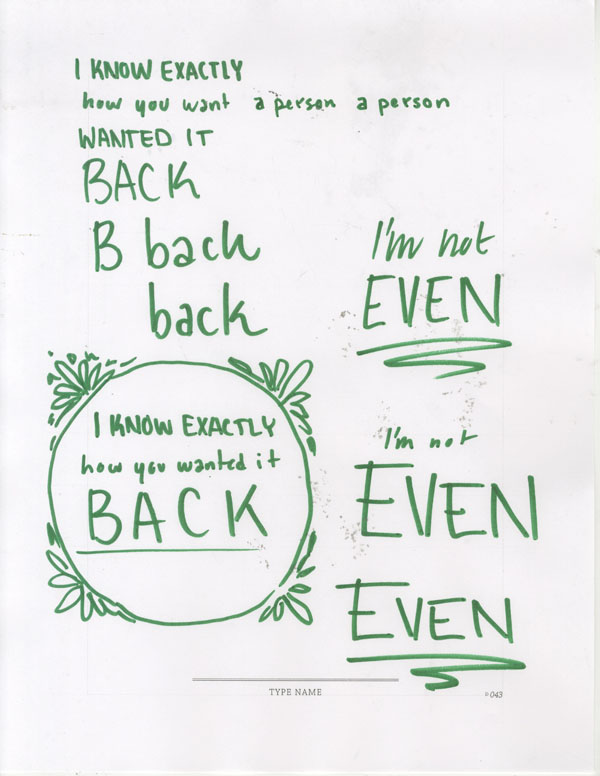 I KNOW EXACTLY
how you want a person a person
WANTED IT
BACK
B back
back
I'm not
EVEN
I KNOW EXACTLY
how you wanted it
BACK
I'm not
EVEN
EVEN
TYPE NAME
P 043